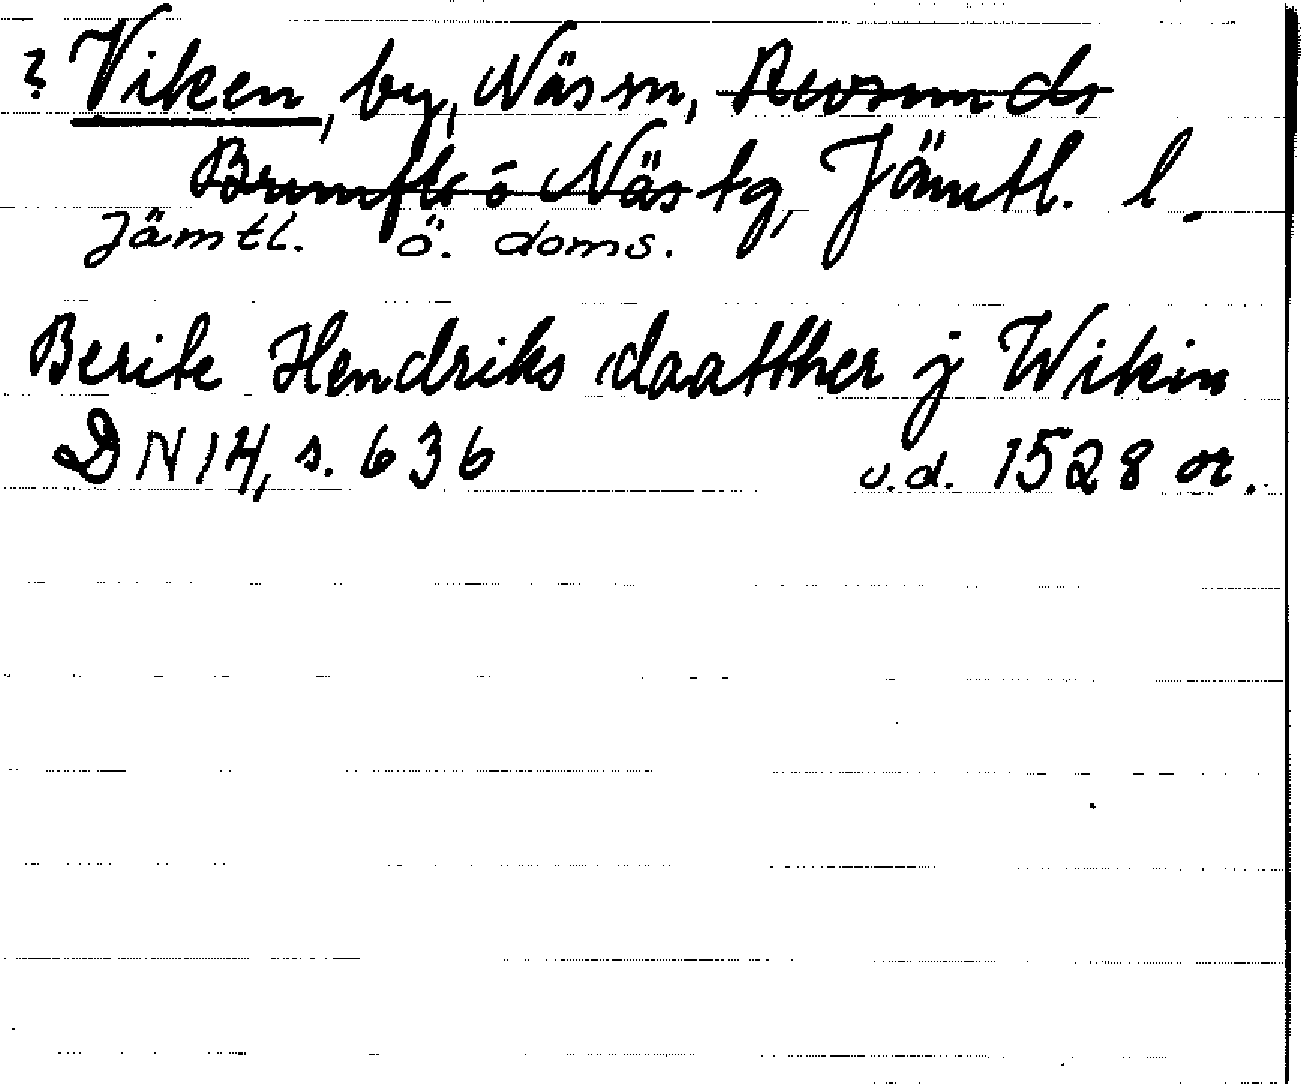 ? Viken, by, Näs sn, Revsunds
Brunflo o Näs tg, Jämtl. l.
Jämtl. Ö. doms.
Berite Hendriks daatther j Wikin
DN 14, s. 636 u.d. 1528 or.